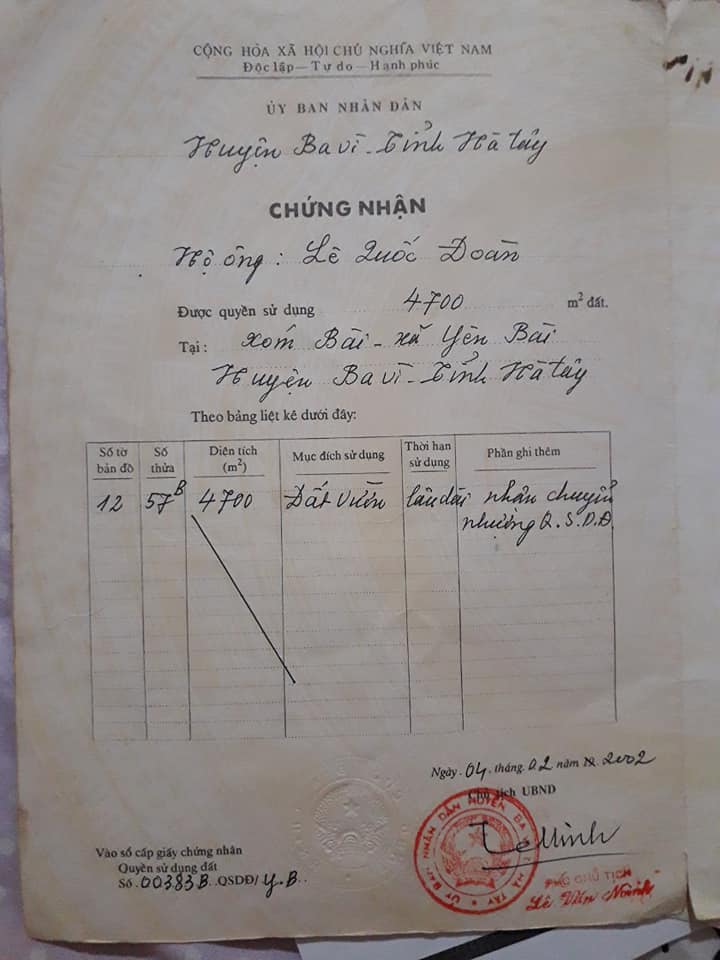 CỘNG HÒA XÃ HỘI CHỦ NGHĨA VIỆT NAM
Độc lập — Tự do — Hạnh phúc
ỦY BAN NHÂN DÂN
Huyện Ba vì - Tỉnh Hà tây
CHỨNG NHẬN
Hộ ông : Lê Quốc Đoàn
Được quyền sử dụng 4700 m² đất.
Tại : xóm Bài - xã Yên Bài
Huyện Ba vì - Tỉnh Hà tây
Theo bảng liệt kê dưới đây:
Số tờ bản đồ Số thửa Diện tích (m²) Mục đích sử dụng Thời hạn sử dụng Phần ghi thêm
12 57B 4700 Đất vườn lâu dài nhận chuyển
nhượng Q.S.D.Đ
Ngày 04 tháng 02 năm 2002
Chủ tịch UBND
ỦY BAN NHÂN DÂN HUYỆN BA VÌ HÀ TÂY
PHÓ CHỦ TỊCH
Lê Văn Minh
Vào sổ cấp giấy chứng nhân
Quyền sử dụng đất
Số 00383B QSDĐ/ Y.B